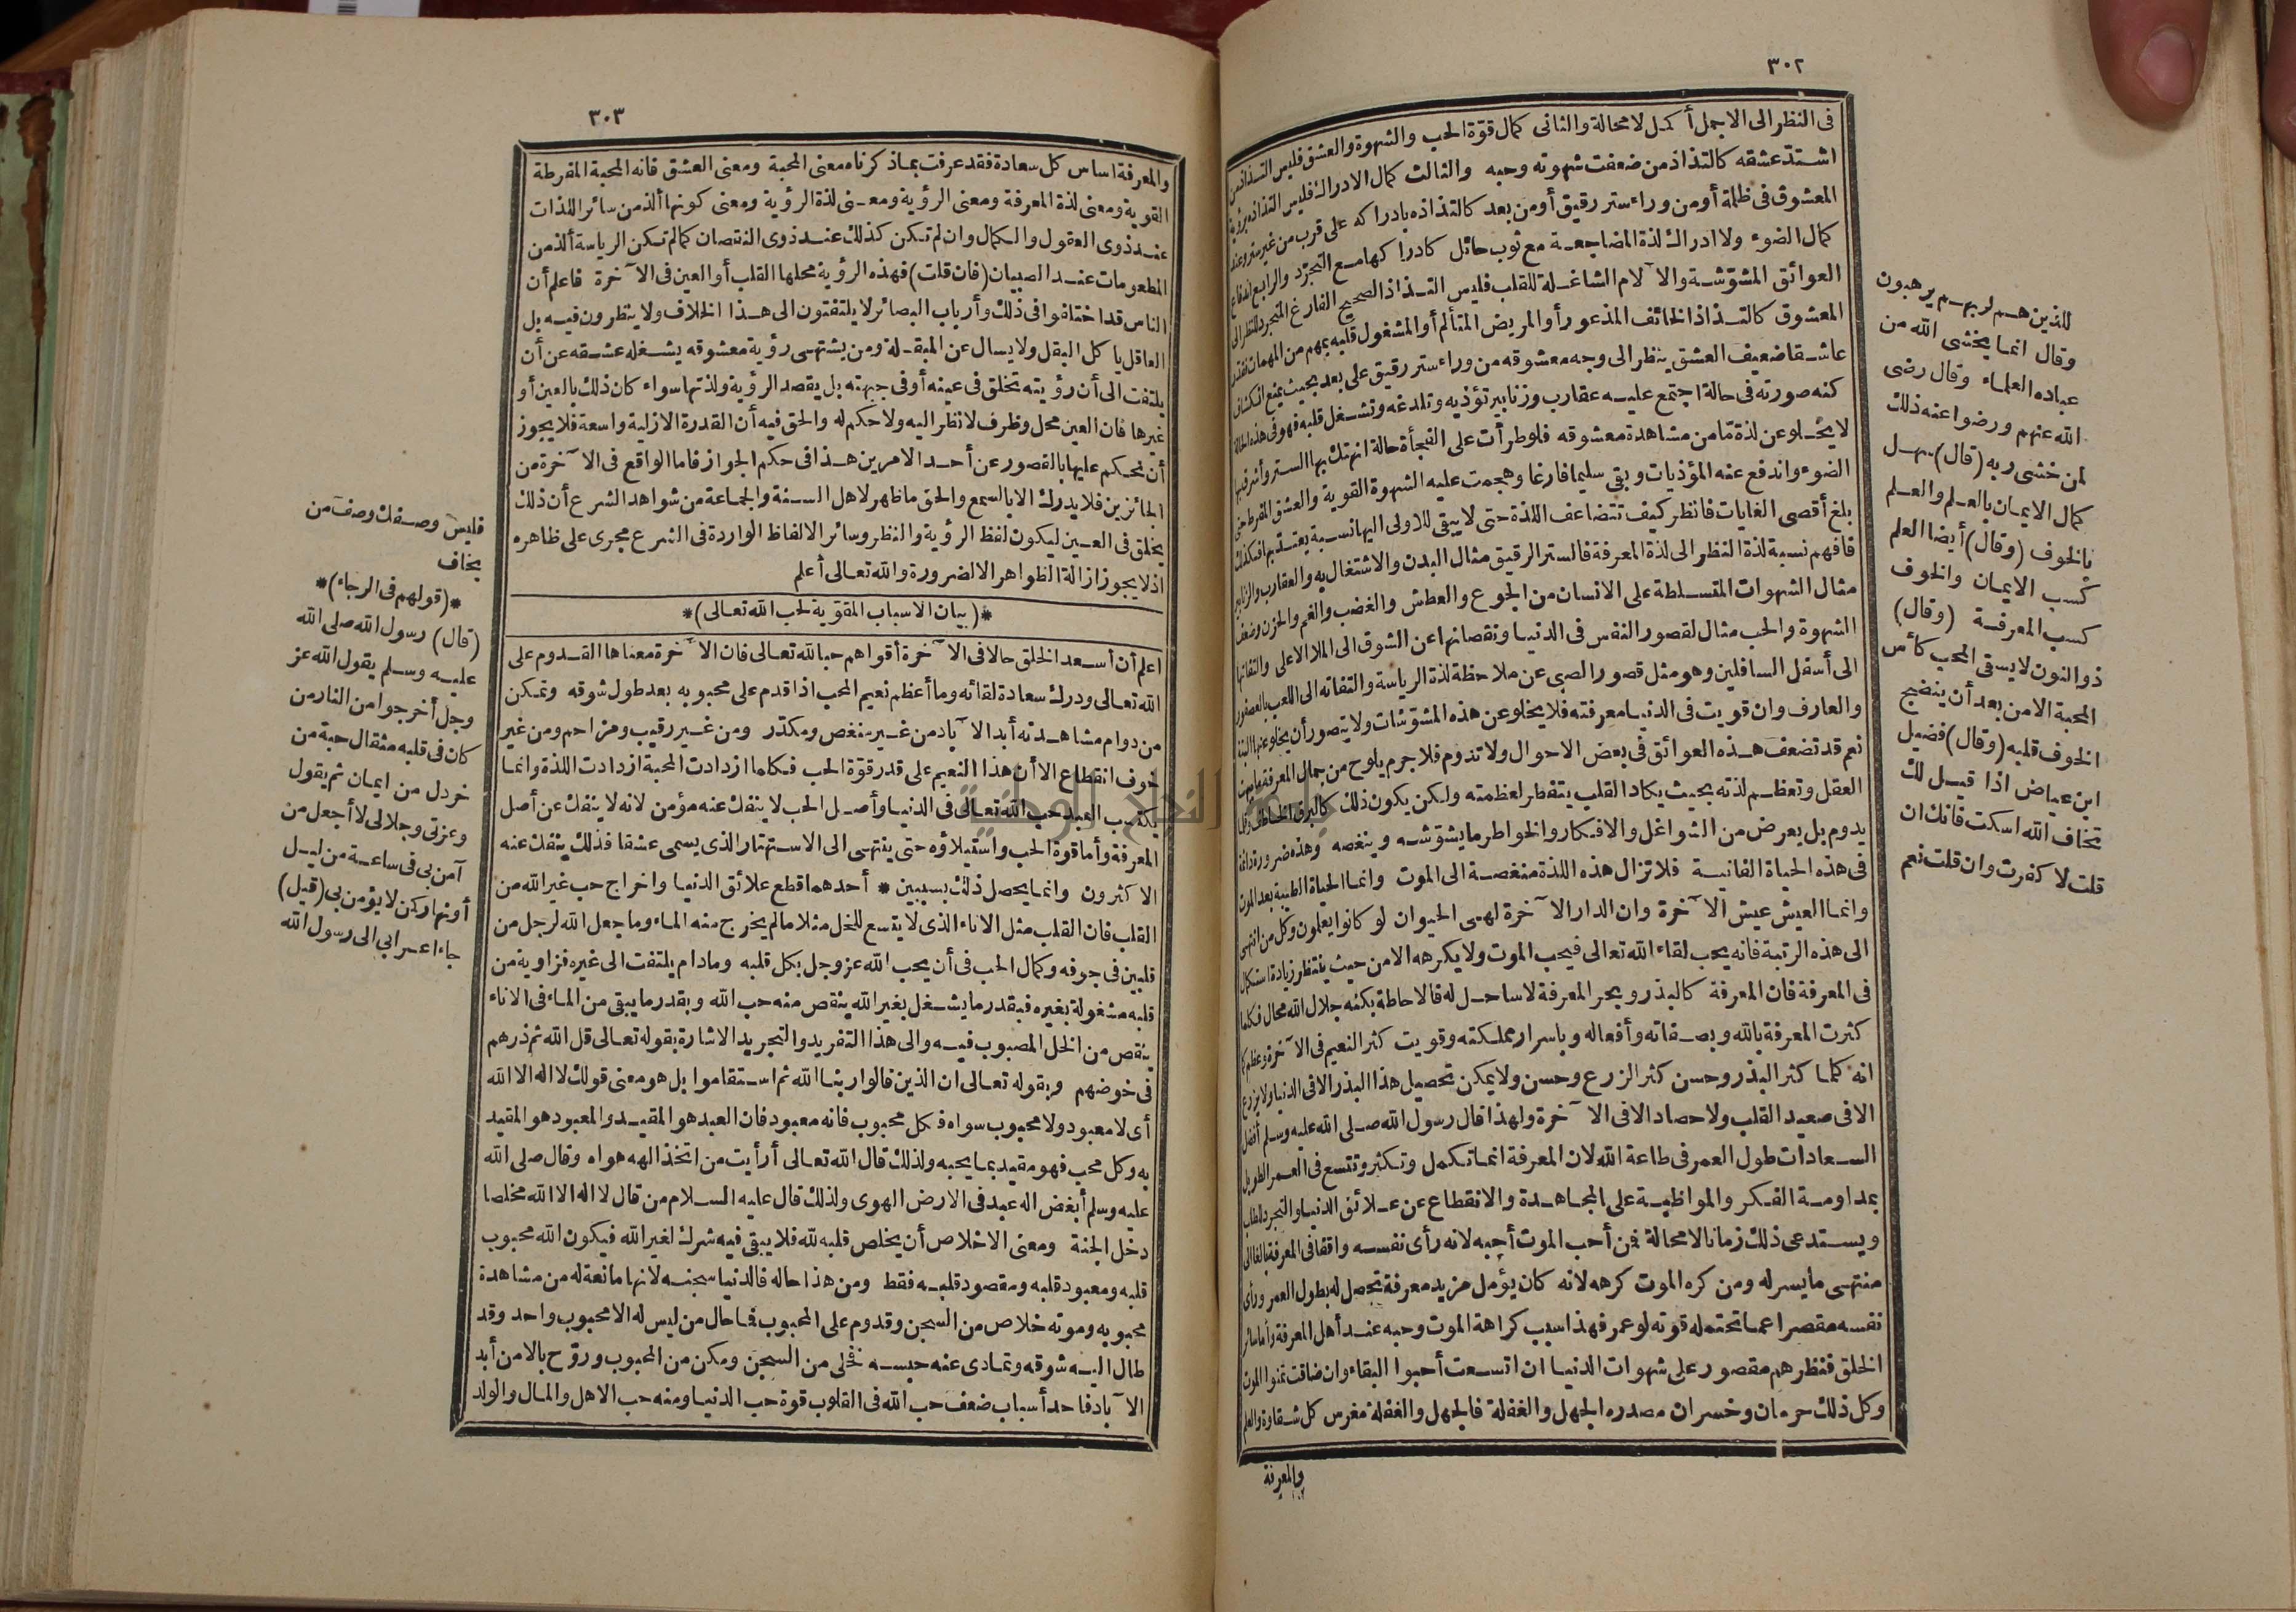 ٣٠٢
فى النظر الى الاجمل أكمل لا محالة والثانى كمال قوّة الحب والشهوة والعشق فليس التذاذ من
اشتدّ عشقه كالتذاذ من ضعفت شهوته وحبه والثالث كمال الادراك فليس التذاذه برؤية
المعشوق فى ظلمة أو من وراء ستر رقيق أو من بعد كالتذاذه بادراكه على قرب من غير ستر وعند
كمال الضوء ولا ادراك لذة المضاجعة مع ثوب حائل كادراكها مع التجرّد والرابع اندفاع
العوائق المشوّشة والا لام الشاغلة للقلب فليس التذاذ الصحيح الفارغ المتجرد للنظر الى
المعشوق كالتذاذ الخائف المذعور أو المريض المتألم أو المشغول قلبه بمهم من المهمات فقدر
عاشقا ضعيف العشق ينظر الى وجه معشوقه من وراء ستر رقيق على بعد بحيث يمنع انكشاف
كنه صورته فى حالة اجتمع عليه عقارب وزنابير تؤذيه وتلدغه وتشغل قلبه فهو فى هذه الحالة
لا يخلو عن لذة مّا من مشاهدة معشوقه فلو طرأت على الفجأة حالة انهتك بها الستر وأشرق بها
الضوء واندفع عنه المؤذيات وبقى سليما فارغا وهجمت عليه الشهوة القوية والعشق المفرط حتى
بلغ أقصى الغايات فانظر كيف تتضاعف اللذة حتى لا يبقى للاولى اليها نسبة يعتد بها فكذلك
فافهم نسبة لذة النظر الى لذة المعرفة فالستر الرقيق مثال البدن والاشتغال به والعقارب والزنابير
مثال الشهوات المتسلطة على الانسان من الجوع والعطش والغضب والغم والحزن وضعف
الشهوة والحب مثال لقصور النفس فى الدنيا ونقصانها عن الشوق الى الملا الاعلى والتفاتها
الى أسفل السافلين وهو مثل قصور الصبى عن ملاحظة لذة الرياسة والتفاته الى اللعب بالعصفور
والعارف وان قويت فى الدنيا معرفته فلا يخلو عن هذه المشوّشات ولا يتصور أن يخلو عنها البتة
نعم قد تضعف هذه العوائق فى بعض الاحوال ولا تدوم فلا جرم يلوح من جمال المعرفة ما يبهت
العقل وتعظم لذته بحيث يكاد القلب يتفطر لعظمته ولكن يكون ذلك كالبرق الخاطف وقلما
يدوم بل يعرض من الشواغل والافكار والخواطر ما يشوّشه وينغصه وهذه ضرورة دائمة
فى هذه الحياة الفانية فلا تزال هذه اللذة منغصة الى الموت وانما الحياة الطيبة بعد الموت
وانما العيش عيش الا خرة وان الدار الا خرة لهى الحيوان لو كانوا يعلمون وكل من انتهى
الى هذه الرتبة فانه يحب لقاء الله تعالى فيحب الموت ولا يكرهه الا من حيث ينتظر زيادة استكمال
فى المعرفة فان المعرفة كالبذر وبحر المعرفة لا ساحل له فالاحاطة بكنه جلال الله محال فكلما
كثرت المعرفة بالله وبصفاته وأفعاله وباسرار مملكته وقويت كثر النعيم فى الا خرة وعظم كما
انه كلما كثر البذر وحسن كثر الزرع وحسن ولا يمكن تحصيل هذا البذر الا فى الدنيا ولا يزرع
الا فى صعيد القلب ولا حصاد الا فى الا خرة ولهذا قال رسول الله صلى الله عليه وسلم أفضل
السعادات طول العمر فى طاعة الله لان المعرفة انما تكمل وتكثر وتتسع فى العمر الطويل
بمداومة الفكر والمواظبة على المجاهدة والانقطاع عن علائق الدنيا والتجرد للطلب
ويستدعى ذلك زمانا لا محالة فمن أحب الموت أحبه لانه رأى نفسه واقفا فى المعرفة بالغا الى
منتهى ما يسر له ومن كره الموت كرهه لانه كان يؤمل مزيد معرفة تحصل له بطول العمر ورأى
نفسه مقصرا عما تحتمله قوته لو عمر فهذا سبب كراهة الموت وحبه عند أهل المعرفة وأما سائر
الخلق فنظرهم مقصور على شهوات الدنيا ان اتسعت أحبوا البقاء وان ضاقت تمنوا الموت
وكل ذلك حرمان وخسران مصدره الجهل والغفلة فالجهل والغفلة مغرس كل شقاوة والعلم
والمعرفة
للذين هم لربهم يرهبون
وقال انما يخشى الله من
عباده العلماء وقال رضى
الله عنهم ورضوا عنه ذلك
لمن خشى ربه (قال) سهل
كمال الايمان بالعلم والعلم
بالخوف (وقال) أيضا العلم
كسب الايمان والخوف
كسب المعرفة (وقال)
ذو النون لا يسقى المحب كأس
المحبة الا من بعد أن ينضج
الخوف قلبه (وقال) فضيل
ابن عياض اذا قيل لك
تخاف الله اسكت فانك ان
قلت لا كفرت وان قلت نعم
٣٠٣
والمعرفة اساس كل سعادة فقد عرفت بماذ كرناه معنى المحبة ومعنى العشق فانه المحبة المفرطة
القوية ومعنى لذة المعرفة ومعنى الرؤية ومعنى لذة الرؤية ومعنى كونها ألذ من سائر اللذات
عند ذوى العقول والكمال وان لم تكن كذلك عند ذوى النقصان كما لم تكن الرياسة ألذ من
المطعومات عند الصبيان (فان قلت) فهذه الرؤية محلها القلب أو العين فى الا خرة فاعلم أن
الناس قد اختلفوا فى ذلك وأرباب البصائر لا يلتفتون الى هذا الخلاف ولا ينظرون فيه بل
العاقل يا كل البقل ولا يسال عن المبقلة ومن يشتهى رؤية معشوقه يشغله عشقه عن أن
يلتفت الى أن رؤيته تخلق فى عينه أو فى جبهته بل يقصد الرؤية ولذتها سواء كان ذلك بالعين أو
غيرها فان العين محل وظرف لا نظر اليه ولا حكم له والحق فيه أن القدرة الازلية واسعة فلا يجوز
أن نحكم عليها بالقصور عن أحد الامرين هذا فى حكم الجواز فاما الواقع فى الا خرة من
الجائزين فلا يدرك الا بالسمع والحق ما ظهر لاهل السنة والجماعة من شواهد الشرع أن ذلك
يخلق فى العين ليكون لفظ الرؤية والنظر وسائر الالفاظ الواردة فى الشرع مجرى على ظاهره
اذ لا يجوز ازالة الظواهر الا لضرورة والله تعالى أعلم
*(بيان الاسباب المقوية لحب الله تعالى)*
اعلم أن أسعد الخلق حالا فى الا خرة أقواهم حبا لله تعالى فان الا خرة معناها القدوم على
الله تعالى ودرك سعادة لقائه وما أعظم نعيم المحب اذا قدم على محبوبه بعد طول شوقه وتمكن
من دوام مشاهدته أبد الا باد من غير منغص ومكدّر ومن غير رقيب ومزاحم ومن غير
خوف انقطاع الا أن هذا النعيم على قدر قوّة الحب فكلما ازدادت المحبة ازدادت اللذة وانما
يكتسب العبد حب الله تعالى فى الدنيا وأصل الحب لا ينفك عنه مؤمن لانه لا ينفك عن أصل
المعرفة وأما قوة الحب واستيلاؤه حتى ينتهى الى الاستهتار الذى يسمى عشقا فذلك ينفك عنه
الاكثرون وانما يحصل ذلك بسببين * أحدهما قطع علائق الدنيا واخراج حب غير الله من
القلب فان القلب مثل الاناء الذى لا يتسع للخل مثلا ما لم يخرج منه الماء وما جعل الله لرجل من
قلبين فى جوفه وكمال الحب فى أن يحب الله عز وجل بكل قلبه وما دام يلتفت الى غيره فزاوية من
قلبه مشغولة بغيره فبقدر ما يشغل بغير الله ينقص منه حب الله وبقدر ما يبقى من الماء فى الاناء
ينقص من الخل المصبوب فيه والى هذا التفريد والتجريد الاشارة بقوله تعالى قل الله ثم ذرهم
فى خوضهم وبقوله تعالى ان الذين قالوا ربنا الله ثم استقاموا بل هو معنى قولك لا اله الا الله
أى لا معبود ولا محبوب سواه فكل محبوب فانه معبود فان العبد هو المقيد والمعبود هو المقيد
به وكل محب فهو مقيد بما يحبه ولذلك قال الله تعالى أرأيت من اتخذ الهه هواه وقال صلى الله
عليه وسلم أبغض اله عبد فى الارض الهوى ولذلك قال عليه السلام من قال لا اله الا الله مخلصا
دخل الجنة ومعنى الاخلاص أن يخلص قلبه لله فلا يبقى فيه شرك لغير الله فيكون الله محبوب
قلبه ومعبود قلبه ومقصود قلبه فقط ومن هذا حاله فالدنيا سجنه لانها مانعة له من مشاهدة
محبوبه وموته خلاص من السجن وقدوم على المحبوب فما حال من ليس له الا محبوب واحد وقد
طال اليه شوقه وتمادى عنه حبسه فخلى من السجن ومكن من المحبوب وروّح بالامن أبد
الا باد فاحد أسباب ضعف حب الله فى القلوب قوة حب الدنيا ومنه حب الاهل والمال والولد
فليس وصفك وصف من
يخاف
*(قولهم فى الرجاء)*
(قال) رسول الله صلى الله
عليه وسلم يقول الله عز
وجل أخرجوا من النار من
كان فى قلبه مثقال حبة من
خردل من ايمان ثم يقول
وعزتى وجلالى لا أجعل من
آمن بى فى ساعة من ليل
أو نهار كمن لا يؤمن بى (قيل)
جاء اعرابى الى رسول الله